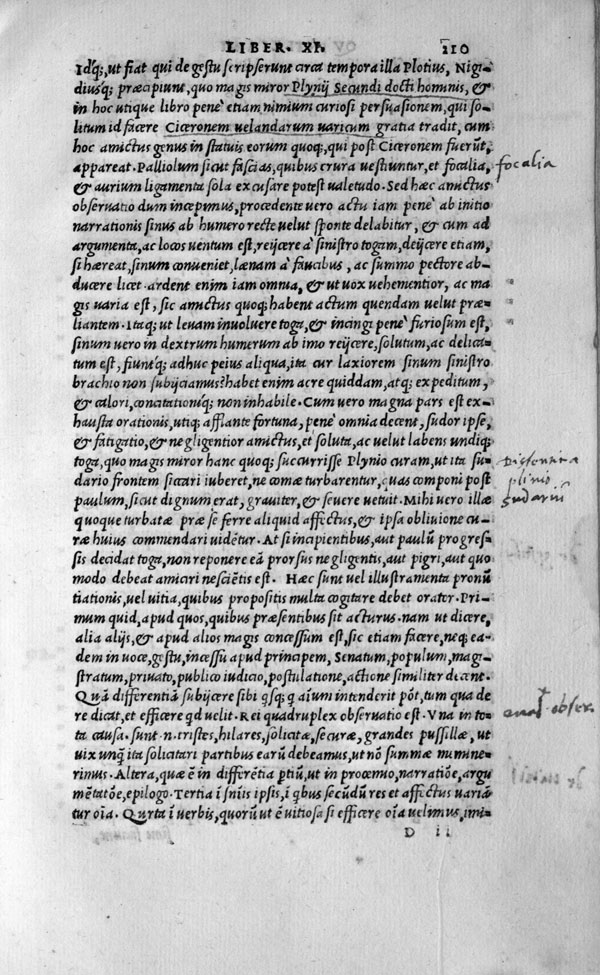 LIBER. XI. 210
Idq́;, ut fiat qui de gestu scripserunt circa tempora illa Plotius, Nigi-
diusq́; præcipiunt, quo magis miror Plynij Secundi docti hominis, &
in hoc utique libro penè etiam nimium curiosi persuasionem, qui so-
litum id facere Ciceronem uelandarum uaricum gratia tradit, cum
hoc amictus genus in statuis eorum quoq;, qui post Ciceronem fuerũt,
appareat. Palliolum sicut fascias, quibus crura uestiuntur, et focalia,
focalia
& aurium ligamenta sola excusare potest ualetudo. Sed hæc amictus
obseruatio dum incepimus, procedente uero actu iam penè ab initio
narrationis sinus ab humero recte uelut sponte delabitur, & cum ad
argumenta, ac locos uentum est, reijcere à sinistro togam, deijcere etiam,
si hæreat, sinum conueniet, lænam à faucibus, ac summo pectore ab-
ducere licet. ardent enim iam omnia, & ut uox uehementior, ac ma
gis uaria est, sic amictus quoq; habent actum quendam uelut præ-
liantem. Itaq; ut leuam inuoluere toga, & incingi penè furiosum est,
sinum uero in dextrum humerum ab imo reijcere, solutum, ac delica-
tum est, fiuntq́; adhuc peius aliqua, ita cur laxiorem sinum sinistro
brachio non subijciamus? habet enim acre quiddam, atq; expeditum,
& calori, concitationiq́; non inhabile. Cum uero magna pars est ex-
hausta orationis, utiq; afflante fortuna, penè omnia decent, sudor ipse,
& fatigatio, & negligentior amictus, et soluta, ac uelut labens undiq;
toga, quo magis miror hanc quoq; succurrisse Plynio curam, ut ita su-
dario frontem siccari iuberet, ne comæ turbarentur, quas componi post
plinio
paulum, sicut dignum erat, grauiter, & seuere uetuit. Mihi uero illæ
sudariũ
quoque turbatæ præ se ferre aliquid affectus, & ipsa obliuione cu-
ræ huius commendari uidẽtur. At si incipientibus, aut paulũ progres-
sis decidat toga, non reponere eã prorsus negligentis, aut pigri, aut quo
modo debeat amiciri nesciẽtis est. Hæc sunt uel illustramenta pronũ
tiationis, uel uitia, quibus propositis multa cogitare debet orator. Pri-
mum quid, apud quos, quibus præsentibus sit acturus. nam ut dicere,
alia alijs, & apud alios magis concessum est, sic etiam facere, neq; ea-
dem in uoce, gestu, incessu apud principem, Senatum, populum, magi-
stratum, priuato, publico iudicio, postulatione, actione similiter decent.
Quã differentiã subijcere sibi qsq; q aĩum intenderit põt, tum qua de
re dicat, et efficere qd uelit. Rei quadruplex obseruatio est. Vna in to-
obser.
ta causa. sunt .n. tristes, hilares, solicitæ, securæ, grandes pussillæ, ut
uix unq̃ ita solicitari partibus earũ debeamus, ut nõ summæ memine-
rimus. Altera, quæ ẽ in differẽtia ptiũ, ut in proœmio, narratiõe, argu
mẽtatõe, epilogo. Tertia ĩ sniis ipsis, ĩ qbus secũdũ res et affectus uariã
tur oĩa. Qurta ĩ uerbis, quorũ ut ẽ uitiosa si efficere oĩa uelimus, imi-
D ii